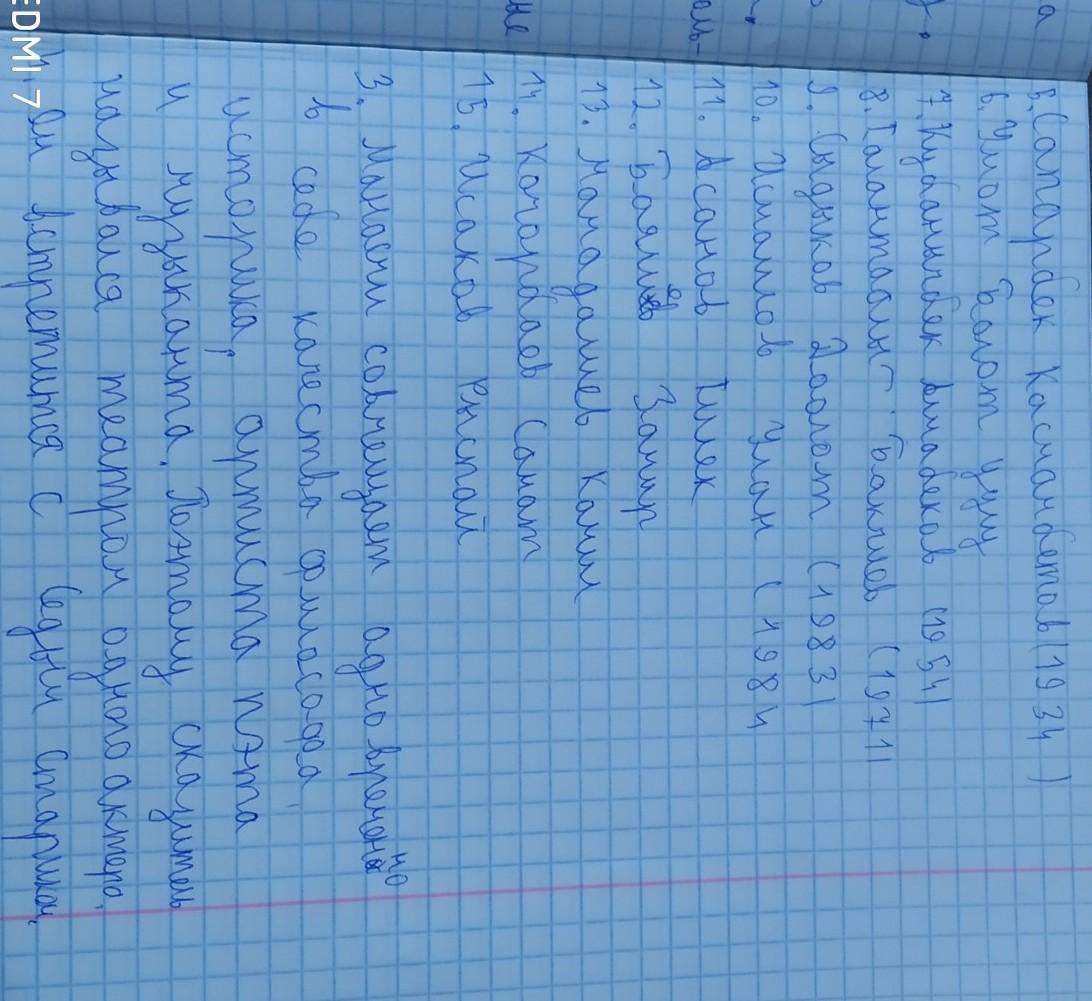 5. Сапарбек Касмамбетов (1934)
6. Умот Болот уулу
7. Кубанычбек Алмабеков (1954)
8. Талантаалы Бакчиев (1971)
9. Сыдыков Доолот (1983)
10. Исмаилов Улан (1984
11. Асанов Тилек
12. Баялиев Замир
13. Мамадалиев Камил
14. Качорбаов Самат
15. Исаков Рыспай
3. Манасчи совмещает адновременно
в себе качества философа,
историка, артиста поэта
и музыканта. Поэтому сказитель
назывался театром одного актера.
4. Он встретился с седым старцем,
REDMI 7